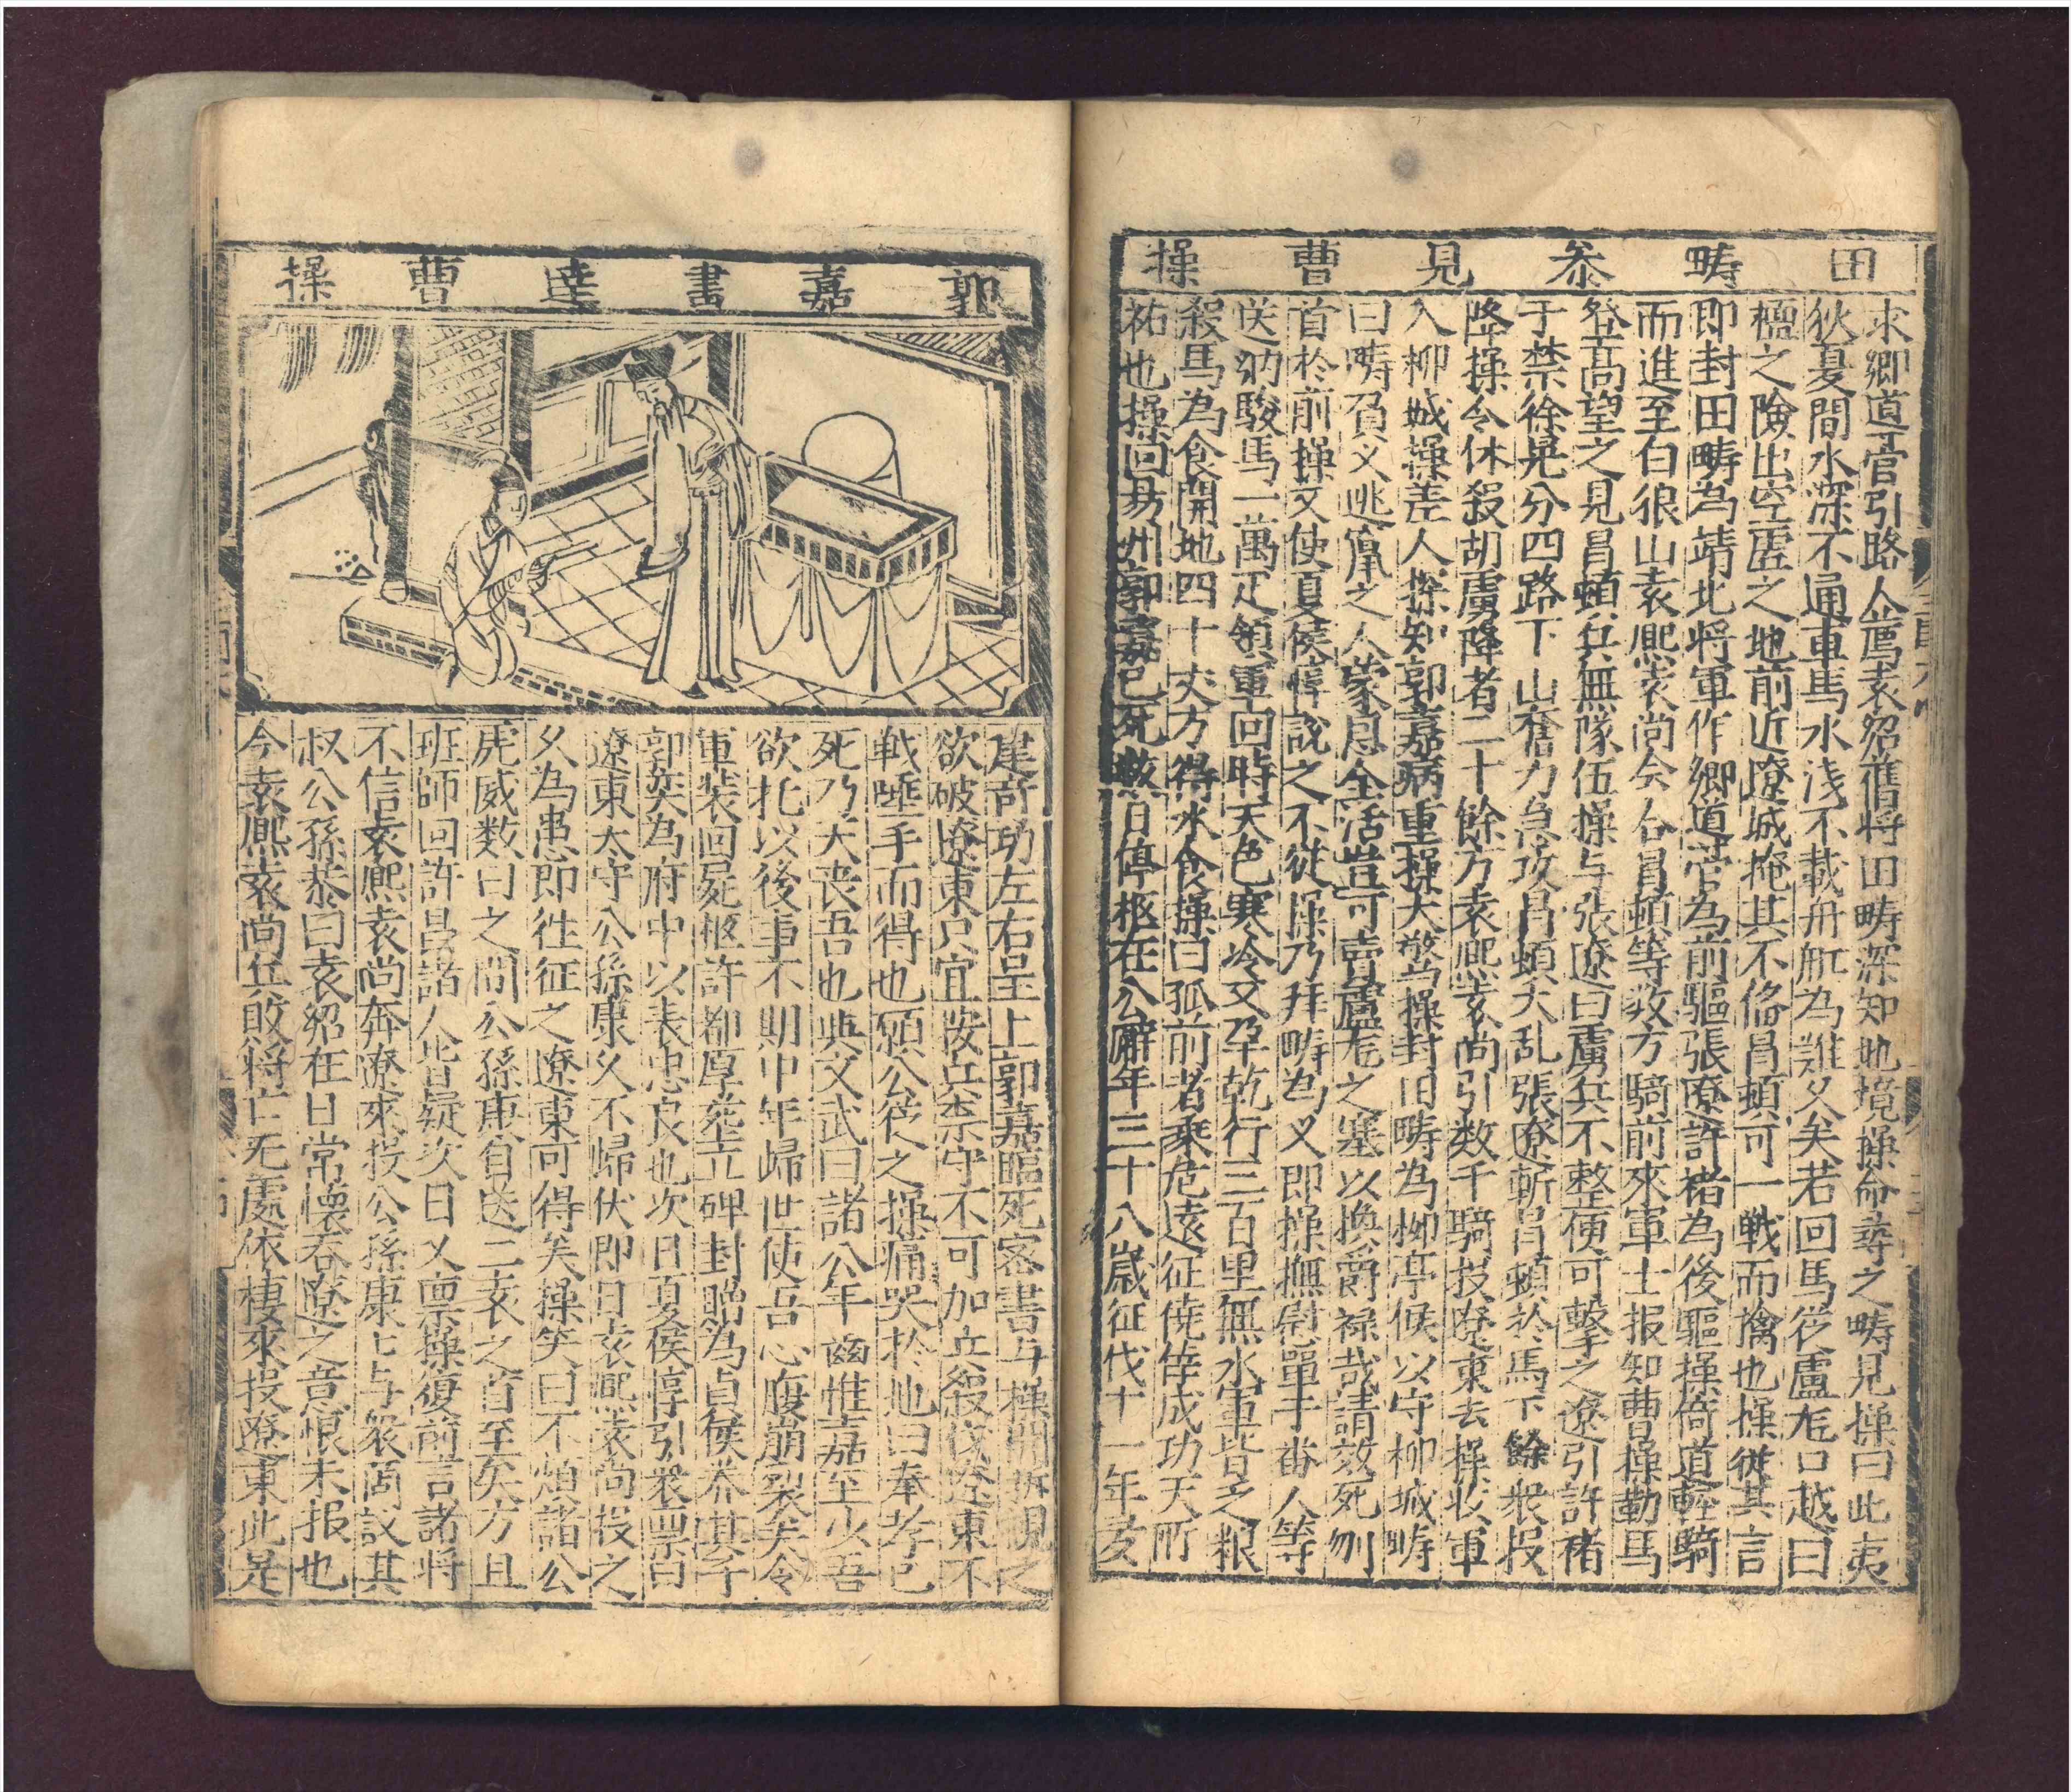 田疇叅見曹操
求鄉道官引路人薦袁紹舊将田疇深知地境操命尋之疇見操曰此夷
狄夏間水深不通車馬水浅不載舟舡為難乆矣若回馬従盧龙口越曰
檀之險出空虗之地前近遼城掩其不俻冒頓可一戦而擒也操従其言
即封田疇為靖北将軍作鄉道官為前驅張遼許褚為後驅操倍道輕騎
而進至白狼山袁熈袁尚会合冒頓等数万騎前來軍士报知曹操勒馬
登髙望之見冒頓兵無隊伍操与張遼曰虜兵不整便可擊之遼引許褚
于禁徐晃分四路下山奮力急攻冒頓大乱張遼斬冒頓於馬下餘衆投
降操令休殺胡虜降者二十餘万袁熈袁尚引数千騎投遼東去操收軍
入柳城操差人探知郭嘉病重操大驚操封田疇為柳亭侯以守柳城疇
曰疇負义逃竄之人蒙恩全活豈可賣盧龙之塞以換爵禄哉請效死刎
首於前操又使夏侯惇說之不從操乃拜疇為义郎操撫慰單于畨人等
送納駿馬一萬疋領軍回時天色寒冷又旱乾行三百里無水軍皆乏粮
殺馬為食開地四十丈方得水食操曰孤前者乘危遠征僥倖成功天所
祐也操回易州郭嘉已死数日停柩在公廨年三十八歳征伐十一年多
郭嘉書達曹操
建竒功左右呈上郭嘉臨死密書与操開拆視之
欲破遼東只宜按兵禁守不可加兵殺伐遼東不
戦唾手而得也願公従之操痛哭於地曰奉孝已
死乃天丧吾也與文武曰諸公年齒惟嘉至少吾
欲托以後事不期中年歸世使吾心腹崩裂矣令
軍装回屍柩許都厚塟立碑封贈為貞侯养其子
郭奕為府中以表忠良也次日夏侯惇引衆禀曰
遼東太守公孫康乆不歸伏即日袁熈袁尚投之
乆為患即徃征之遼東可得矣操笑曰不煩諸公
虎威数日之間公孫康自送二袁之首至矣方且
班師回許昌諸人皆疑次日又禀操復前言諸将
不信袁熈袁尚奔遼來投公孫康七与衆商议其
叔公孫恭曰袁紹在日常懷吞遼之意恨未报也
今袁熈袁尚兵敗将亡无處依棲來投遼東此是